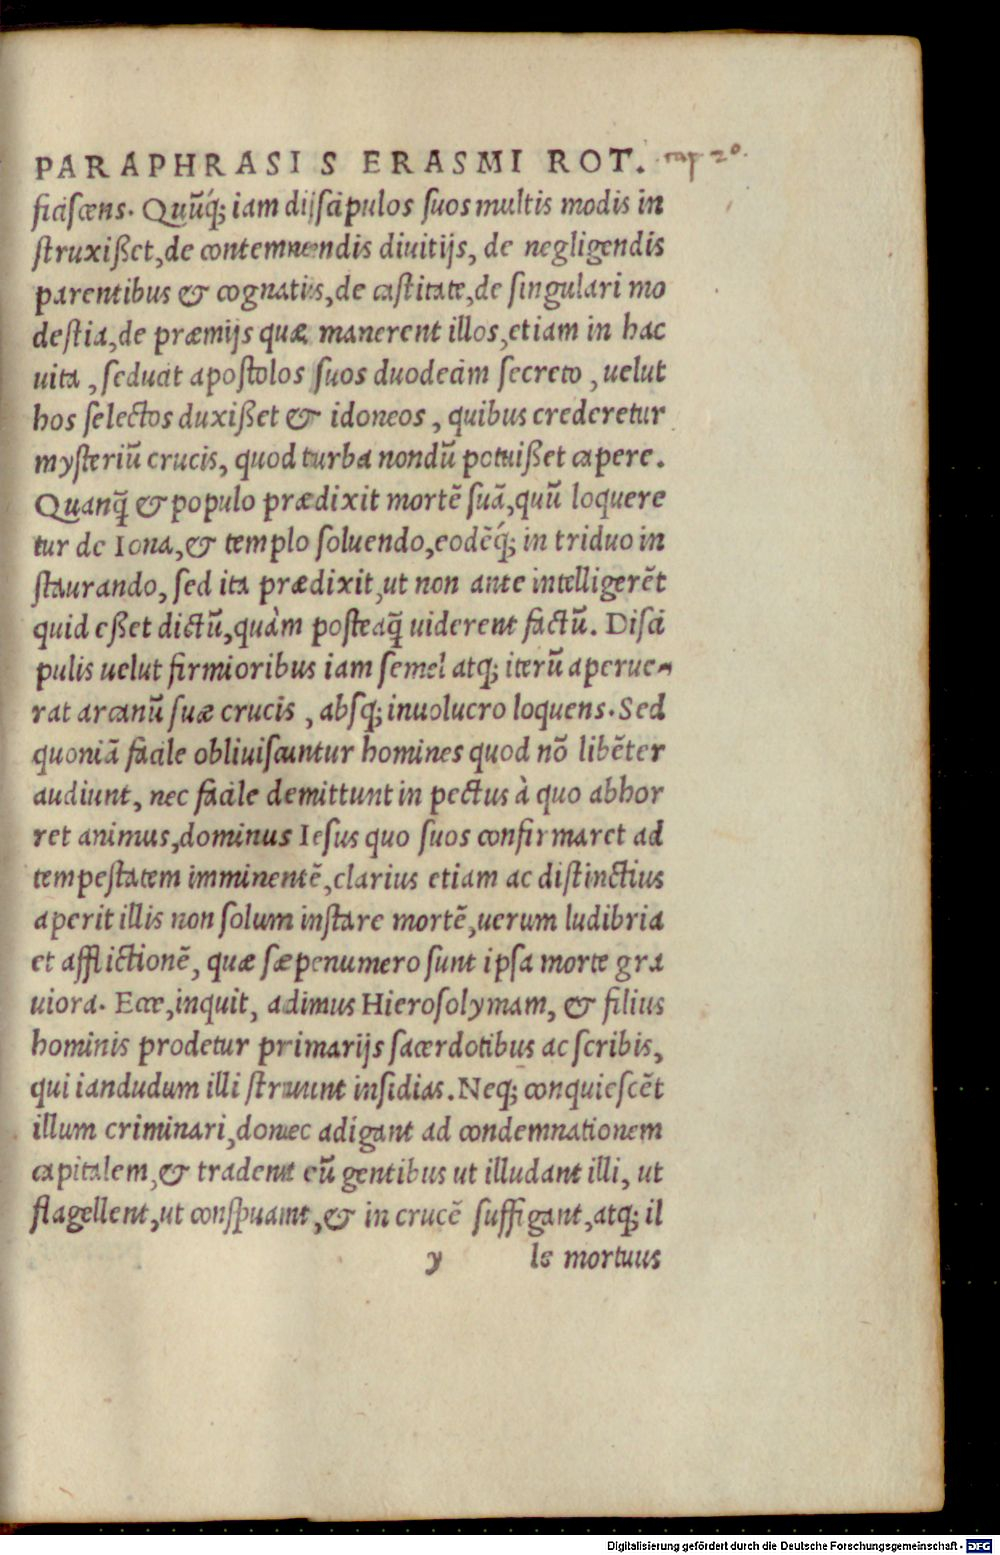 PARAPHRASIS ERASMI ROT. cap 20.
ficiſcens. Quūq́; iam diſcipulos ſuos multis modis in
ſtruxißet, de contemnendis diuitijs, de negligendis
parentibus & cognatis, de caſtitate, de ſingulari mo
deſtia, de præmijs quæ manerent illos, etiam in hac
uita, ſeducit apoſtolos ſuos duodecim ſecreto, uelut
hos ſelectos duxißet & idoneos, quibus crederetur
myſteriū crucis, quod turba nondū potuißet capere.
Quanq̄ & populo prædixit mortē ſuā, quū loquere
tur de Iona, & templo ſoluendo, eodēq́; in triduo in
ſtaurando, ſed ita prædixit, ut non ante intelligerēt
quid eßet dictū, quàm poſteaq̄ uiderent factū. Diſci
pulis uelut firmioribus iam ſemel atq; iterū aperue-
rat arcanū ſuæ crucis, abſq; inuolucro loquens. Sed
quoniā facile obliuiſcuntur homines quod nō libēter
audiunt, nec facile demittunt in pectus à quo abhor
ret animus, dominus Ieſus quo ſuos confirmaret ad
tempeſtatem imminentē, clarius etiam ac diſtinctius
aperit illis non ſolum inſtare mortē, uerum ludibria
et afflictionē, quæ ſæpenumero ſunt ipſa morte gra
uiora. Ecce, inquit, adimus Hieroſolymam, & filius
hominis prodetur primarijs ſacerdotibus ac ſcribis,
qui iandudum illi ſtruunt inſidias. Neq; conquieſcēt
illum criminari, donec adigant ad condemnationem
capitalem, & tradent eū gentibus ut illudant illi, ut
flagellent, ut conſpuant, & in crucē ſuffigant, atq; il
y le mortuus
Digitalisierung gefördert durch die Deutsche Forschungsgemeinschaft - DFG